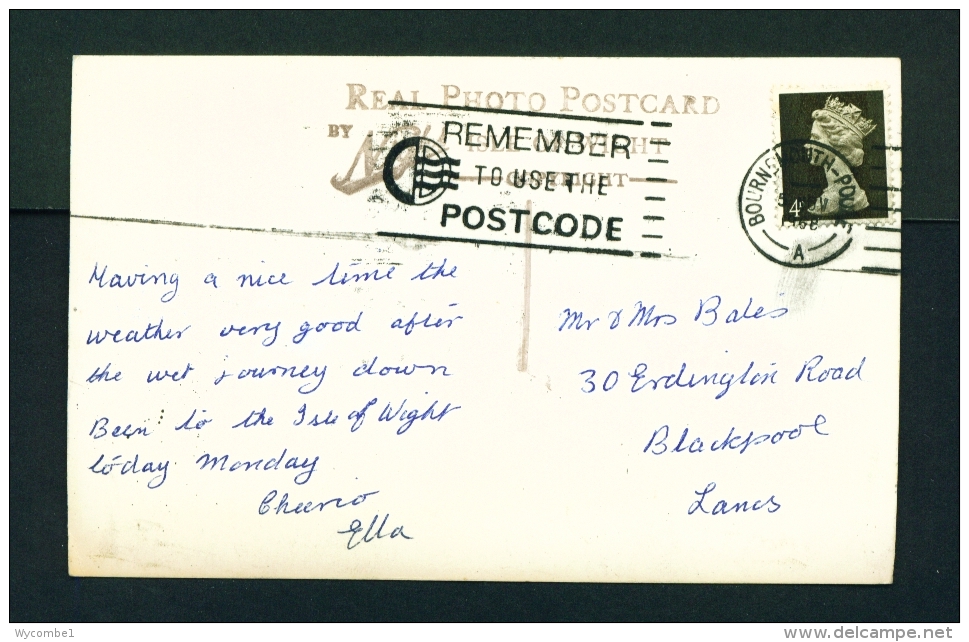 REAL PHOTO POSTCARD
BY
REMEMBER
TO USE THE
POSTCODE
BOURNEMOUTH-POOLE
A
4
Having a nice time the
weather very good after
the wet journey down
Been to the Isle of Wight
to day Monday
Cheerio
Ella
Mr & Mrs Bales
30 Erdington Road
Blackpool
Lancs
Wycombe1
www.delcampe.net